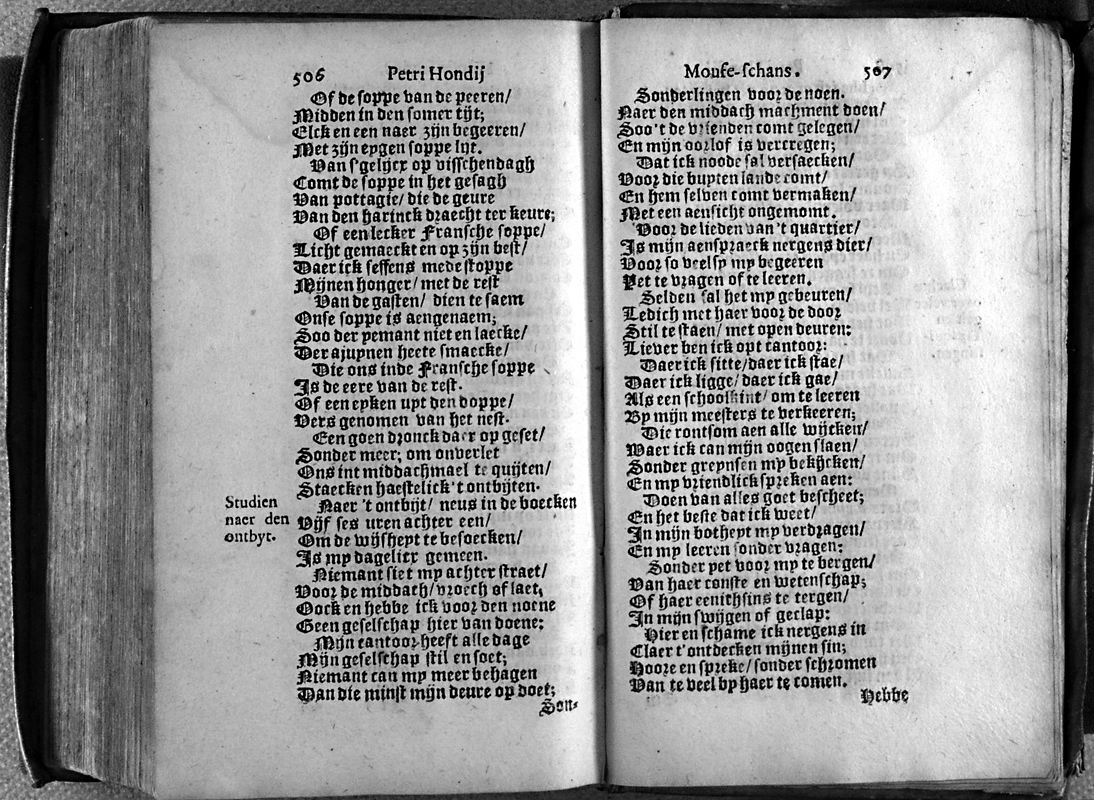 506 Petri Hondij
Of de soppe van de peeren/
Midden in den somer tijt;
Elck en een naer zijn begeeren/
Met zijn eygen soppe lijt.
Van s'gelijcx op visschendagh
Comt de soppe in het gesagh
Van pottagie/ die de geure
Van den harinck draecht ter keure;
Of een lecker Fransche soppe/
Licht gemaeckt en op zijn best/
Daer ick seffens mede stoppe
Mijnen honger/ met de rest
Van de gasten/ dien te saem
Onse soppe is aengenaem;
Soo der yemant niet en laecke/
Der ajuynen heete smaecke/
Die ons inde Fransche soppe
Is de eere van de rest.
Of een eyken upt den doppe/
Vers genomen van het nest.
Een goen dronck daer op geset/
Sonder meer; om onverlet
Ons int middachmael te quijten/
Staecken haestelick 't ontbijten.
Studien
naer den
ontbyt.
Naer 't ontbijt/ neus in de boecken
Vijf ses uren achter een/
Om de wijsheyt te besoecken/
Is my dagelicx gemeen.
Niemant siet my achter straet/
Voor de middach/ vroech of laet,
Oock en hebbe ick voor den noene
Geen geselschap hier van doene;
Mijn cantoor heeft alle dage
Mijn geselschap stil en soet;
Niemant can my meer behagen
Dan die minst mijn deure op doet;
Son-
Mouse-schans. 507
Sonderlingen voor de noen.
Naer den middach machment doen/
Soo't de vrienden comt gelegen/
En mijn oorlof is vercregen;
Dat ick noode sal versaecken/
Voor die buyten lande comt/
En hem selven comt vermaken/
Met een aensicht ongemomt.
Voor de lieden van't quartier/
Is mijn aenspraeck nergens dier/
Voor so veel sy my begeeren
Yet te vragen of te leeren.
Selden sal het my gebeuren/
Ledich met haer voor de door
Stil te staen/ met open deuren:
Liever ben ick opt cantoor:
Daer ick sitte/ daer ick stae/
Daer ick ligge/ daer ick gae/
Als een schoolkint/ om te leeren
By mijn meesters te verkeeren;
Die rontsom aen alle wijcken/
Waer ick can mijn oogen slaen/
Sonder greynsen my bekijcken/
En my vriendlick spreken aen:
Doen van alles goet bescheet;
En het beste dat ick weet/
In mijn botheyt my verdragen/
En my leeren sonder vragen:
Sonder yet voor my te bergen/
Van haer conste en wetenschap;
Of haer eenichsins te tergen/
In mijn swijgen of geclap:
Hier en schame ick nergens in
Claer t'ontdecken mijnen sin;
Hoore en spreke/ sonder schromen
Van te veel by haer te comen.
Hebbe